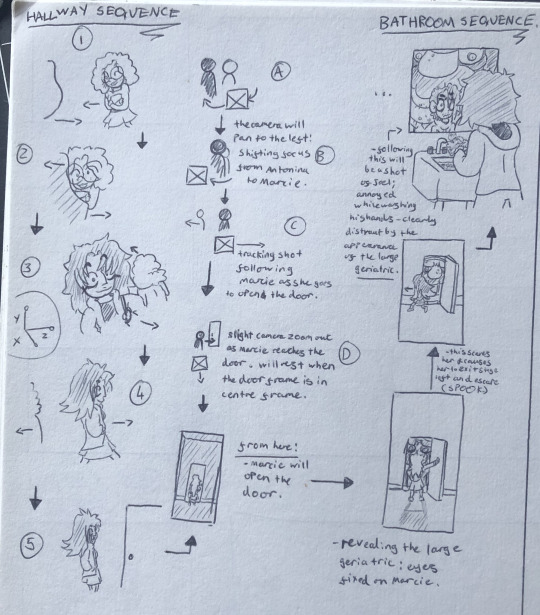 HALLWAY SEQUENCE
BATHROOM SEQUENCE.
1
2
3
y
x
z
4
5
A
the camera will
pan to the left!
shifting focus
from Antonina
to Marcie.
B
C
tracking shot
following
marcie as she goes
to open the door.
D
slight camera zoom out
as Marcie reaches the
door. will rest when
the door frame is in
centre frame.
from here!
- marcie will
open the
door.
- revealing the large
geriatric; eyes
fixed on Marcie.
- this scares
her & causes
her to exit stage
left and escape
(SPOOK)
...
- following
this will
be a shot
of Joel;
annoyed
while washing
his hands - clearly
distraut by the
appearance
of the large
geriatric.